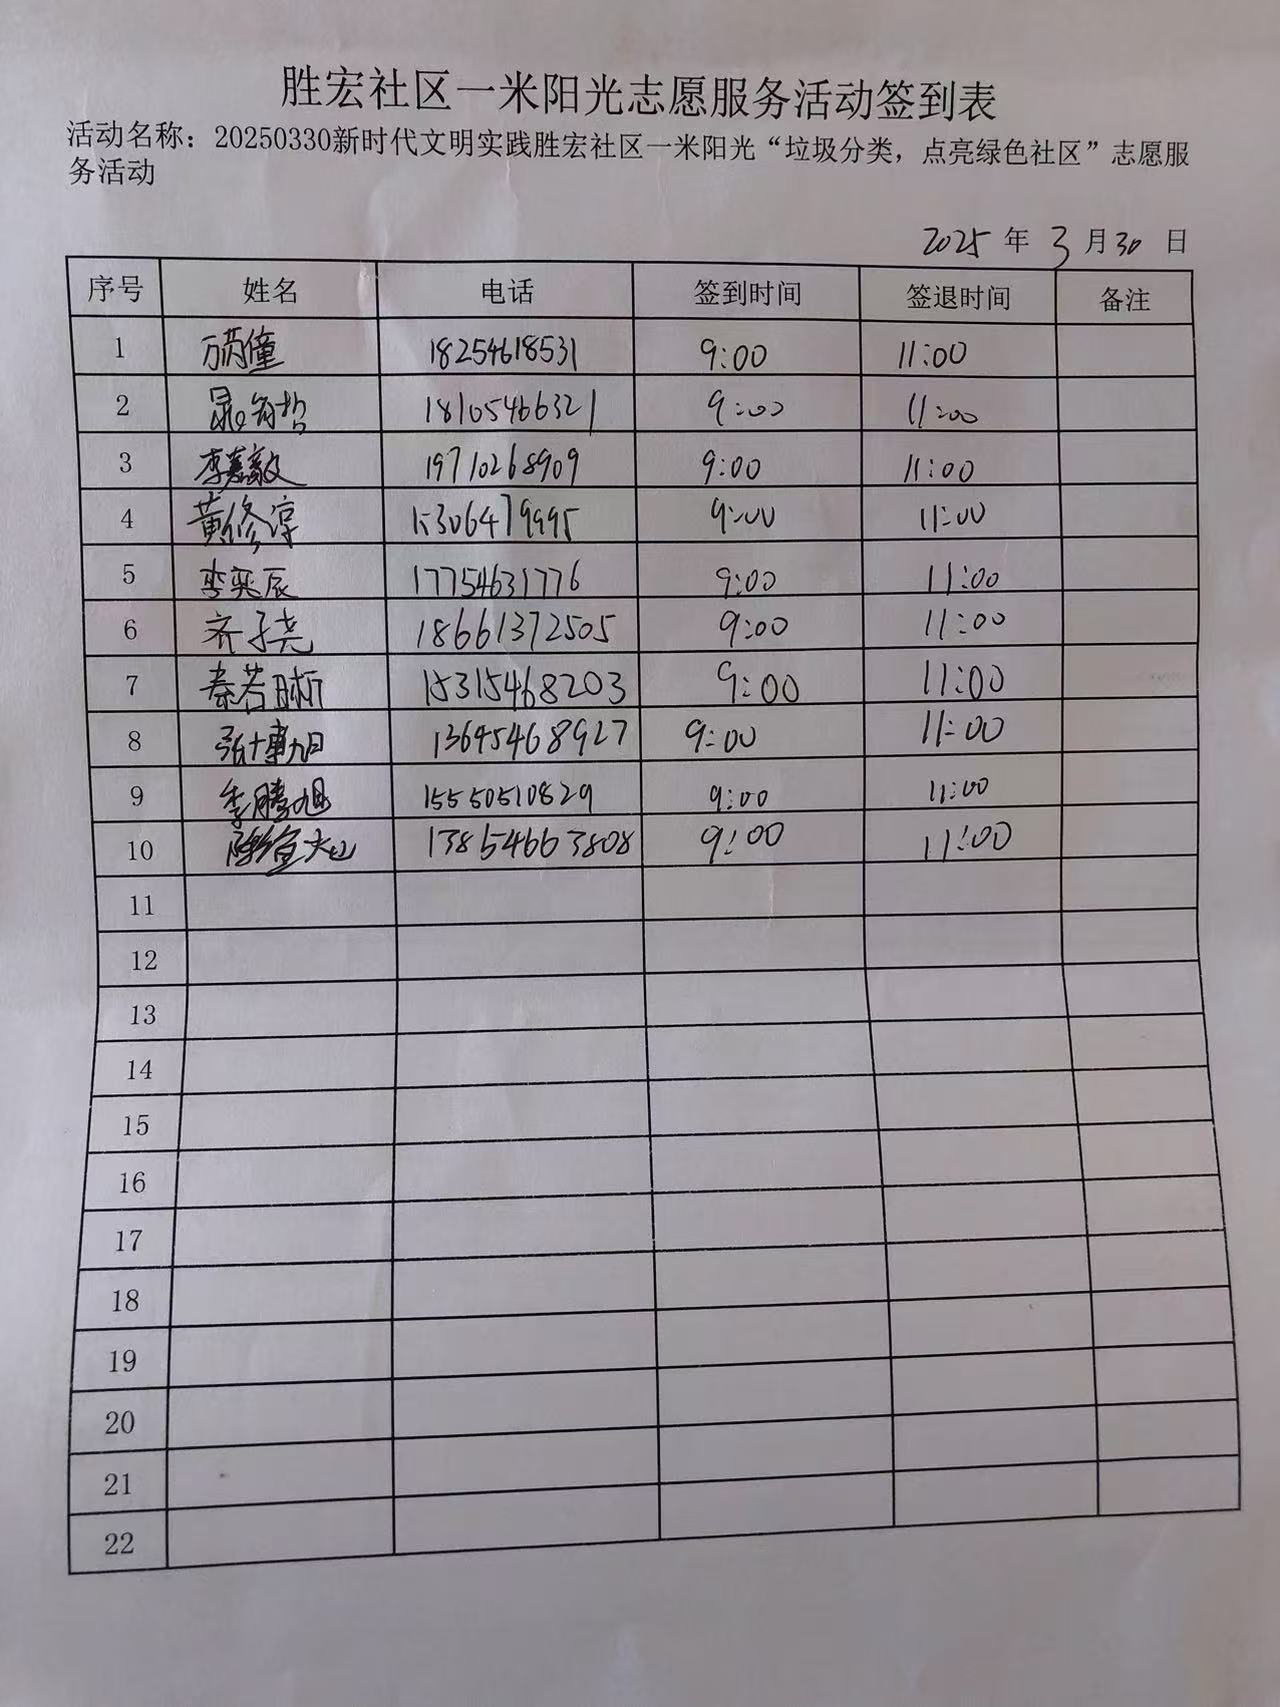 胜宏社区一米阳光志愿服务活动签到表
活动名称：20250330新时代文明实践胜宏社区一米阳光“垃圾分类，点亮绿色社区”志愿服
务活动
2025 年 3 月 30 日
序号 姓名 电话 签到时间 签退时间 备注
1 18254618531 9:00 11:00
2 18105466321 9:00 11:00
3 李嘉毅 19710268909 9:00 11:00
4 黄修淳 15306479995 9:00 11:00
5 李奕辰 17754631776 9:00 11:00
6 齐子尧 18661372505 9:00 11:00
7 秦若晰 15315468203 9:00 11:00
8 张博旭 13645468927 9:00 11:00
9 李腾旭 15550510829 9:00 11:00
10 13854663808 9:00 11:00
11
12
13
14
15
16
17
18
19
20
21
22